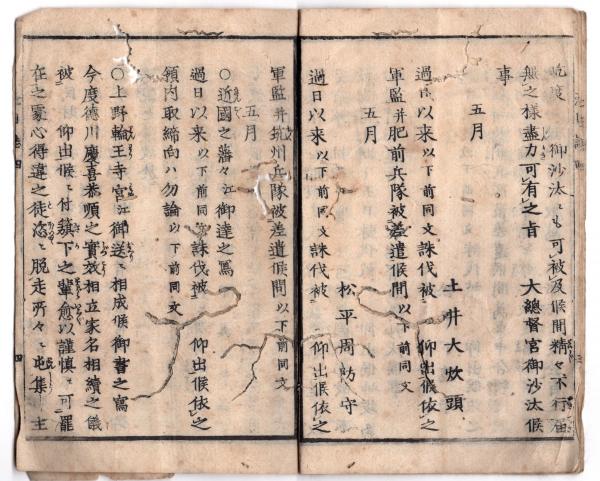 屹度 御沙汰ニも可被及候間精々不行届
無之樣盡力可有之旨 大總督宮御沙汰候
事
五月
土井大炊頭
過日以来以下前同文誅伐被 仰出候依之
軍監并肥前兵隊被差遣候間以下前同文
五月
松平周防守
過日以来以下前同文誅伐被 仰出候依之
軍監并 州兵隊被差遣候間以下前同文
五月
〇近國之藩々江御達之寫
過日以来以下前同文誅伐被 仰出候依之
領内取締向ハ勿論以下前同文
〇上野輪王寺宮江御送ニ相成候御書之寫
今度德川慶喜恭順之實效相立家名相續之儀
被 仰出候ニ付籏下之輩愈以謹慎ニ可罷
在之處心得違之徒 ニ脱走所々ニ屯集 主
四